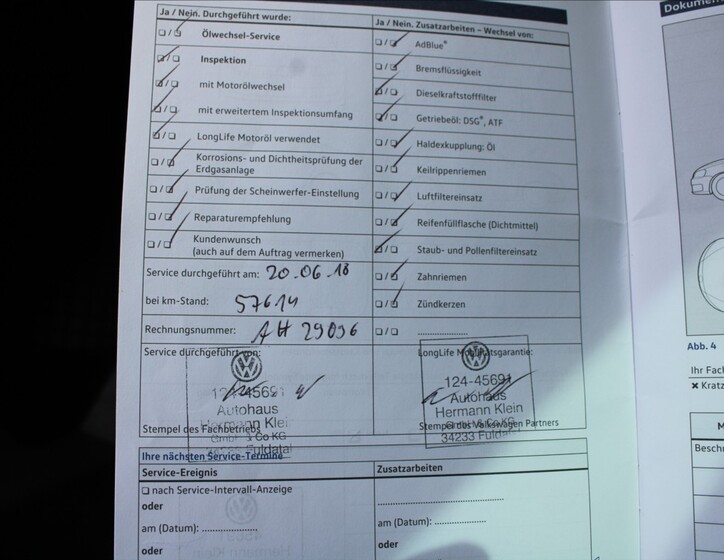 Dokumen
Ja / Nein. Durchgeführt wurde:
Ölwechsel-Service
Inspektion
mit Motorölwechsel
mit erweitertem Inspektionsumfang
LongLife Motoröl verwendet
Korrosions- und Dichtheitsprüfung der
Erdgasanlage
Prüfung der Scheinwerfer-Einstellung
Reparaturempfehlung
Kundenwunsch
(auch auf dem Auftrag vermerken)
Ja / Nein. Zusatzarbeiten – Wechsel von:
AdBlue®
Bremsflüssigkeit
Dieselkraftstofffilter
Getriebeöl: DSG®, ATF
Haldexkupplung: Öl
Keilrippenriemen
Luftfiltereinsatz
Reifenfüllflasche (Dichtmittel)
Staub- und Pollenfiltereinsatz
Zahnriemen
Zündkerzen
Service durchgeführt am: 20.06.18
bei km-Stand: 57614
Rechnungsnummer: AH 29096
Service durchgeführt von:
124-45691
Autohaus
Hermann Klein
GmbH & Co KG
34233 Fuldatal
Stempel des Fachbetriebs
LongLife Mobilitätsgarantie:
124-45691
Autohaus
Hermann Klein
GmbH & Co KG
34233 Fuldatal
Stempel des Volkswagen Partners
Ihre nächsten Service-Termine
Service-Ereignis
nach Service-Intervall-Anzeige
oder
am (Datum):
oder
Zusatzarbeiten
am (Datum):
oder
Abb. 4
Ihr Fach
✖ Kratz
M
Beschr